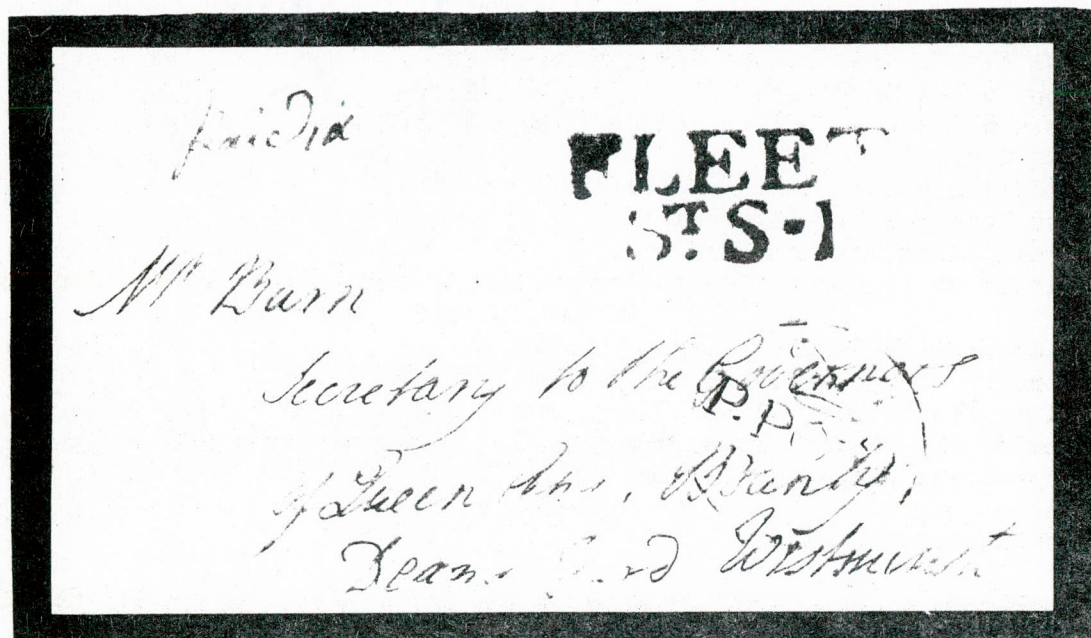 paid 1d
FLEET
ST. S·1
Mr Burn
Secretary to the Governors
P.P.
of Queen Ann, Bounty,
Deans Yard Westminst